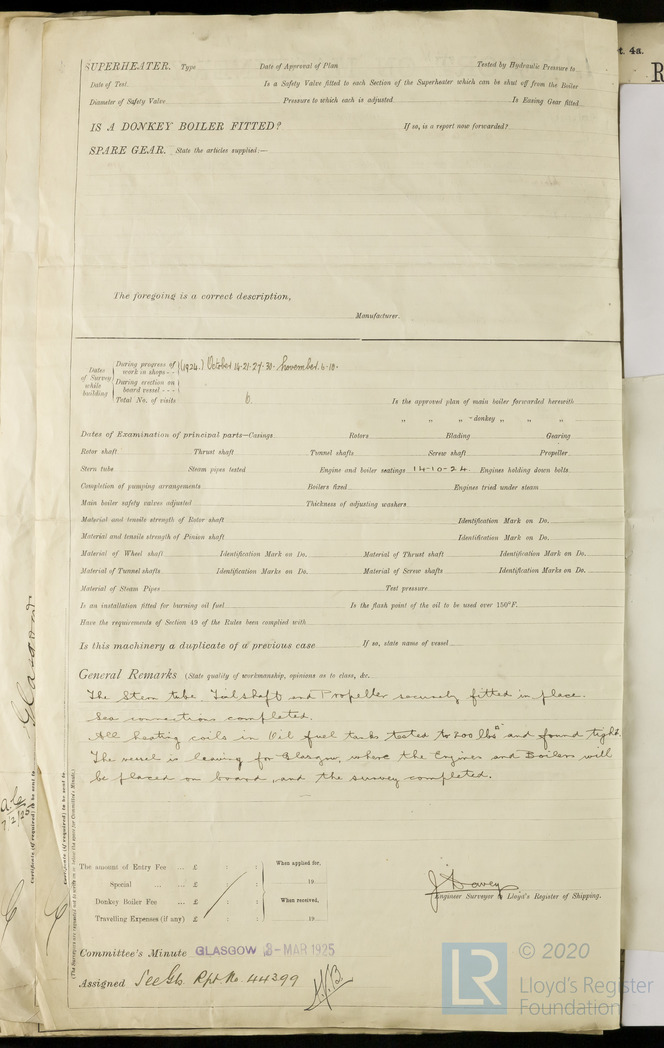 t. 4a.
R
SUPERHEATER. Type Date of Approval of Plan Tested by Hydraulic Pressure to
Date of Test Is a Safety Valve fitted to each Section of the Superheater which can be shut off from the Boiler
Diameter of Safety Valve Pressure to which each is adjusted Is Easing Gear fitted
IS A DONKEY BOILER FITTED? If so, is a report now forwarded?
SPARE GEAR. State the articles supplied:—
The foregoing is a correct description,
Manufacturer.
Dates of Survey while building
During progress of work in shops - - (1924.) October 14-21-27-30. November. 6-10.
During erection on board vessel - - -
Total No. of visits 6. Is the approved plan of main boiler forwarded herewith
„ „ „ - donkey „ „ „
Dates of Examination of principal parts—Casings Rotors Blading Gearing
Rotor shaft Thrust shaft Tunnel shafts Screw shaft Propeller
Stern tube Steam pipes tested Engine and boiler seatings 14-10-24. Engines holding down bolts
Completion of pumping arrangements Boilers fixed Engines tried under steam
Main boiler safety valves adjusted Thickness of adjusting washers
Material and tensile strength of Rotor shaft Identification Mark on Do.
Material and tensile strength of Pinion shaft Identification Mark on Do.
Material of Wheel shaft Identification Mark on Do. Material of Thrust shaft Identification Mark on Do.
Material of Tunnel shafts Identification Marks on Do. Material of Screw shafts Identification Marks on Do.
Material of Steam Pipes Test pressure
Is an installation fitted for burning oil fuel Is the flash point of the oil to be used over 150°F.
Have the requirements of Section 49 of the Rules been complied with
Is this machinery a duplicate of a previous case If so, state name of vessel
General Remarks (State quality of workmanship, opinions as to class, &c.
The Stern tube. Tailshaft and Propeller securely fitted in place.
Sea connections completed.
All heating coils in Oil fuel tanks tested to 200 lbs" and found tight.
The vessel is leaving for Glasgow, where the Engines and Boilers will
be placed on board, and the survey completed.
Glasgow
Certificate (if required) to be sent to
Certificate (if required) to be sent to
(The Surveyors are requested not to write on or below the space for Committee's Minute.)
The amount of Entry Fee ... £ : : When applied for,
Special ... ... £ : : 19
Donkey Boiler Fee ... £ : : When received,
Travelling Expenses (if any) £ : : 19
J Davey
Engineer Surveyor to Lloyd's Register of Shipping.
Committee's Minute GLASGOW 3-MAR 1925
Assigned See Gls. Rpt. No. 44399
LR
© 2020
Lloyd's Register
Foundation